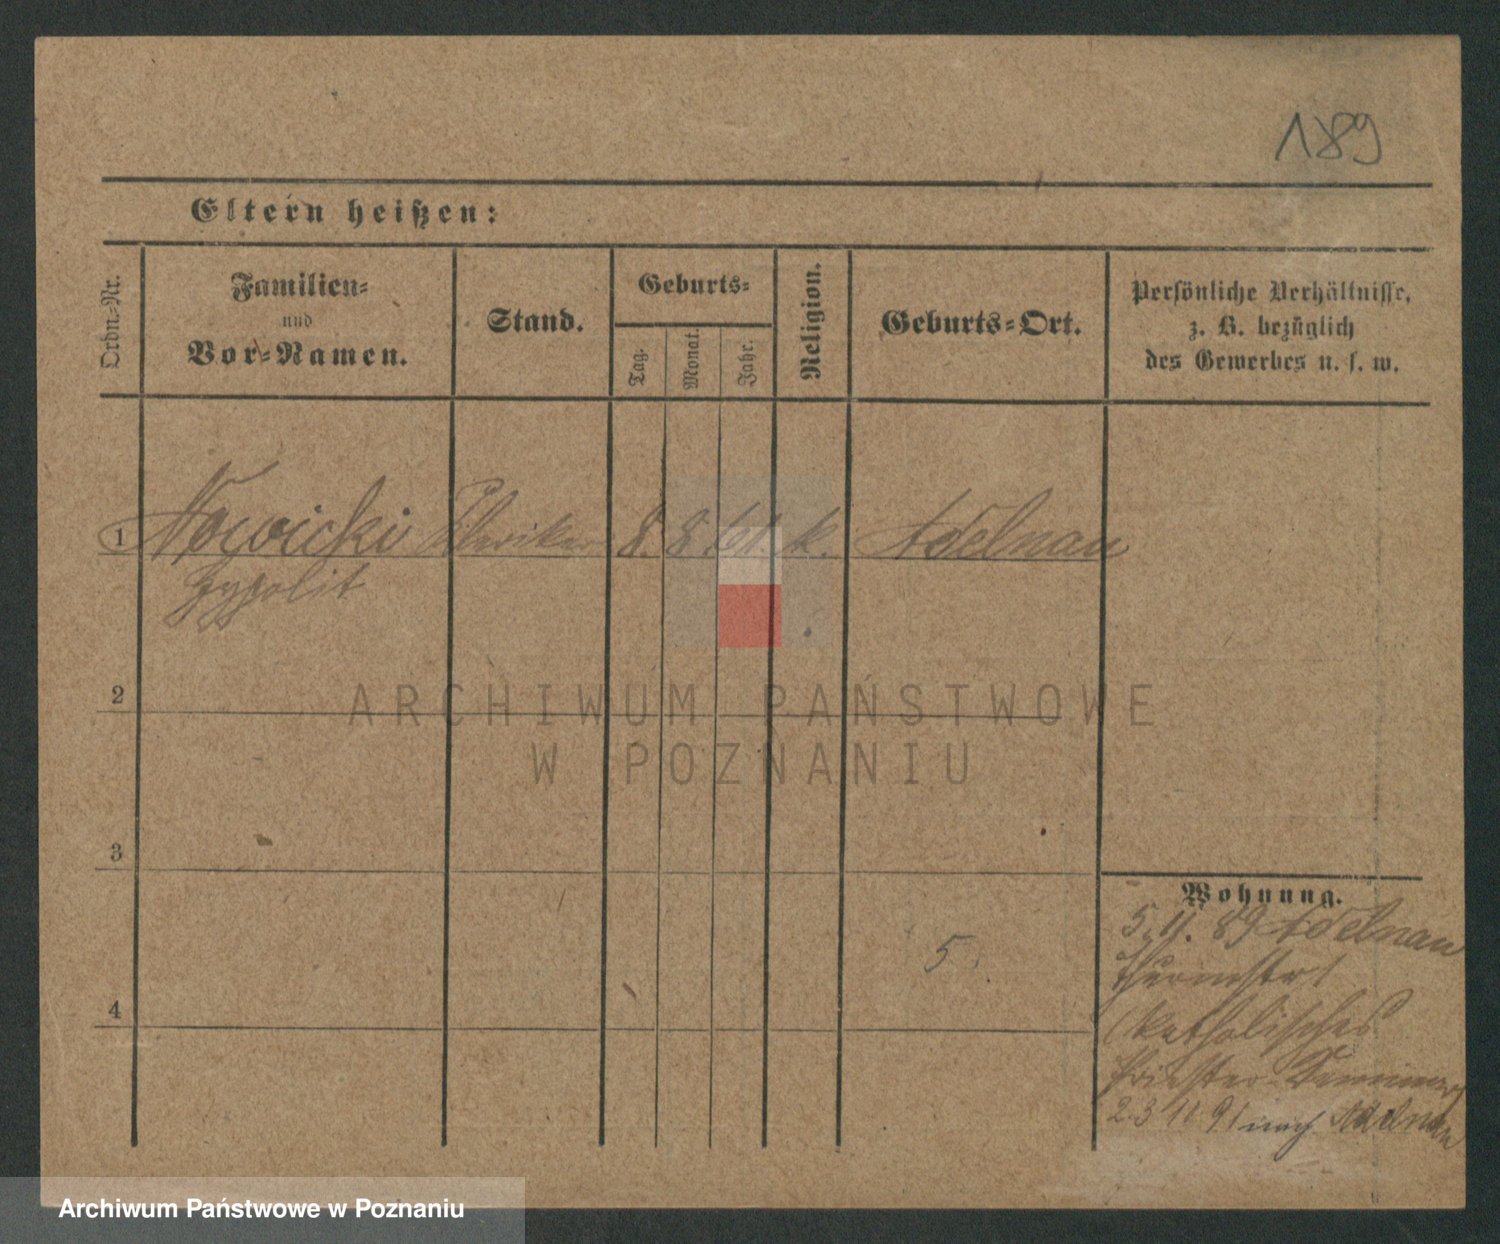 189
Eltern heißen:
Ordn.-Nr.
Familien-
und
Vor-Namen.
Stand.
Geburts-
Tag.
Monat.
Jahr.
Religion.
Geburts-Ort.
Persönliche Verhältnisse,
z. B. bezüglich
des Gewerbes u. s. w.
1 Nowicki Kleriker 8. 8. 61. k. Adelnau
Hypolit
2
ARCHIWUM PAŃSTWOWE
W POZNANIU
3
Wohnung.
5. 11. 89 Adelnau
5.
4
(Katholisches
Priester-Seminar)
2. 3 11 91 nach Adelnau
Archiwum Państwowe w Poznaniu